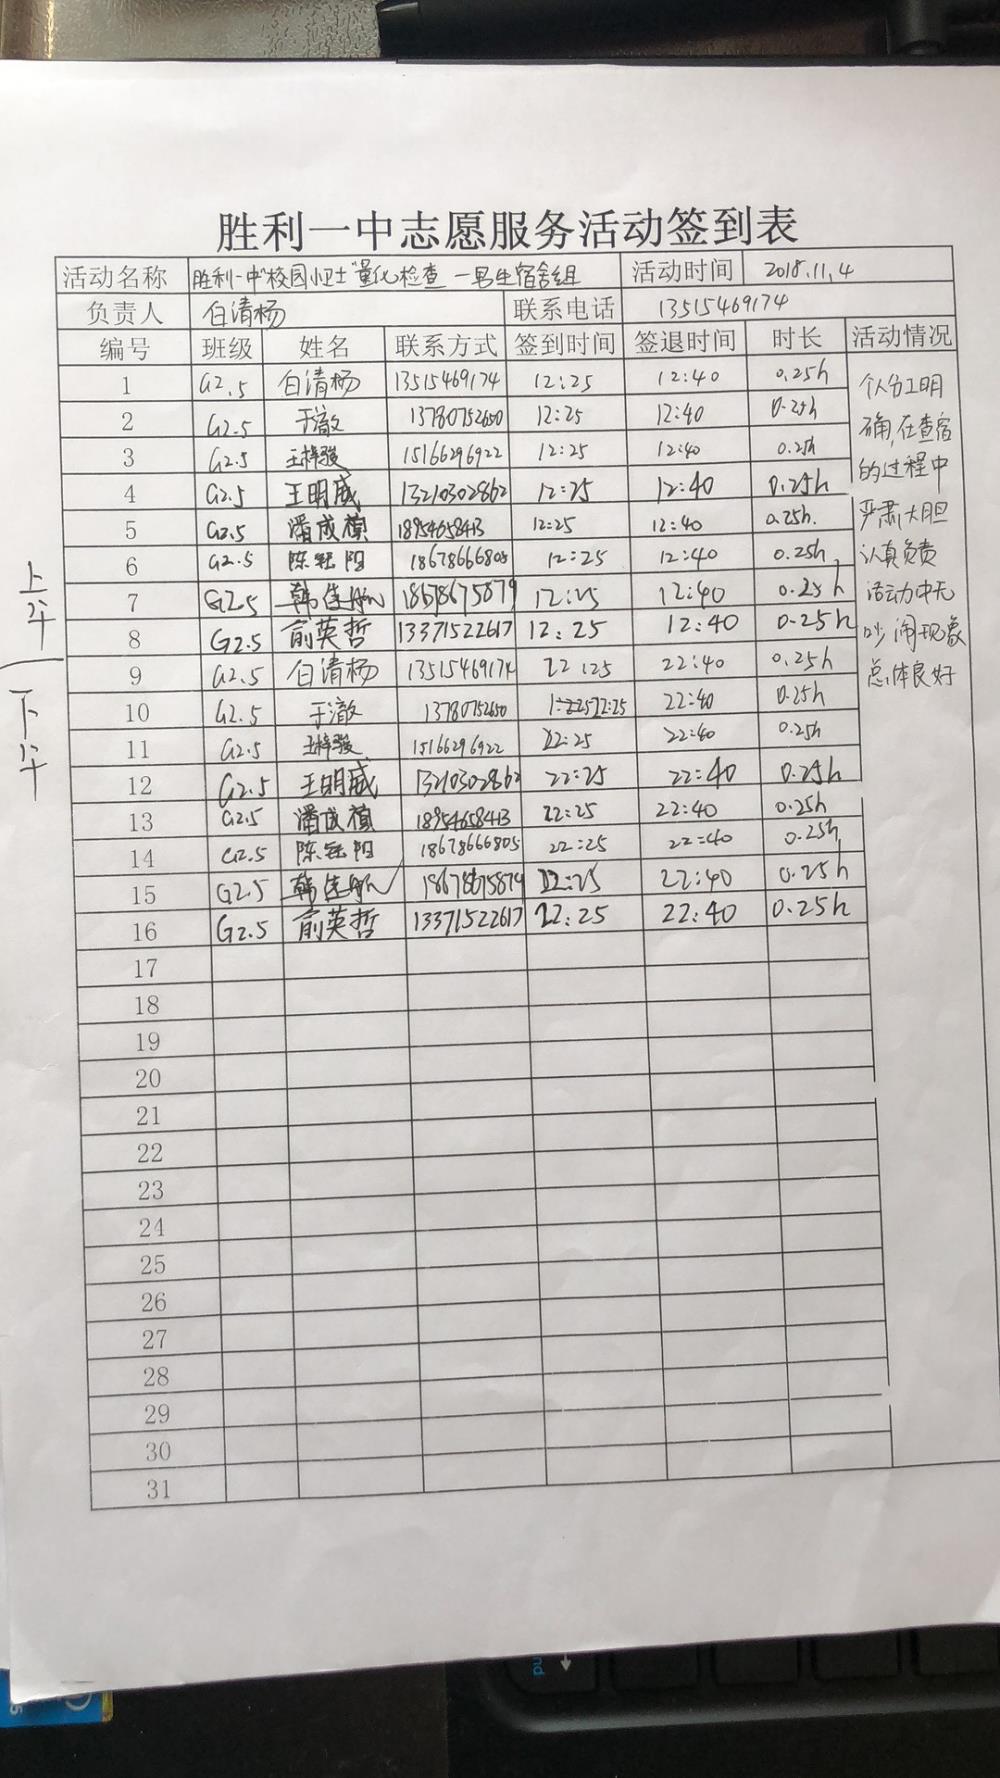 胜利一中志愿服务活动签到表
活动名称 胜利一中"校园小卫士"量化检查 一男生宿舍组 活动时间 2018.11.4
负责人 白清杨 联系电话 13515469174
编号 班级 姓名 联系方式 签到时间 签退时间 时长 活动情况
1 G2.5 白清杨 13515469174 12:25 12:40 0.25h 个人分工明
2 G2.5 于澈 13780752650 12:25 12:40 0.25h 确,在查宿
3 G2.5 王梓骏 15166296922 12:25 12:40 0.25h 的过程中
4 G2.5 王明威 13210302862 12:25 12:40 0.25h
5 G2.5 潘成祯 18954658413 12:25 12:40 0.25h. 严肃,大胆
6 G2.5 陈钰阳 18678666805 12:25 12:40 0.25h 认真负责
上午
7 G2.5 韩佳航 18678675879 12:25 12:40 0.25h 活动中无
8 G2.5 俞英哲 13371522617 12:25 12:40 0.25h 吵闹现象
9 G2.5 白清杨 13515469174 22:25 22:40 0.25h 总体良好
下午
10 G2.5 于澈 13780752650 22:25 22:40 0.25h
11 G2.5 王梓骏 15166296922 22:25 22:40 0.25h
12 G2.5 王明威 13210302862 22:25 22:40 0.25h
13 G2.5 潘成祯 18954658413 22:25 22:40 0.25h
14 G2.5 陈钰阳 18678666805 22:25 22:40 0.25h
15 G2.5 韩佳航 18678675879 22:25 22:40 0.25h
16 G2.5 俞英哲 13371522617 22:25 22:40 0.25h
17
18
19
20
21
22
23
24
25
26
27
28
29
30
31